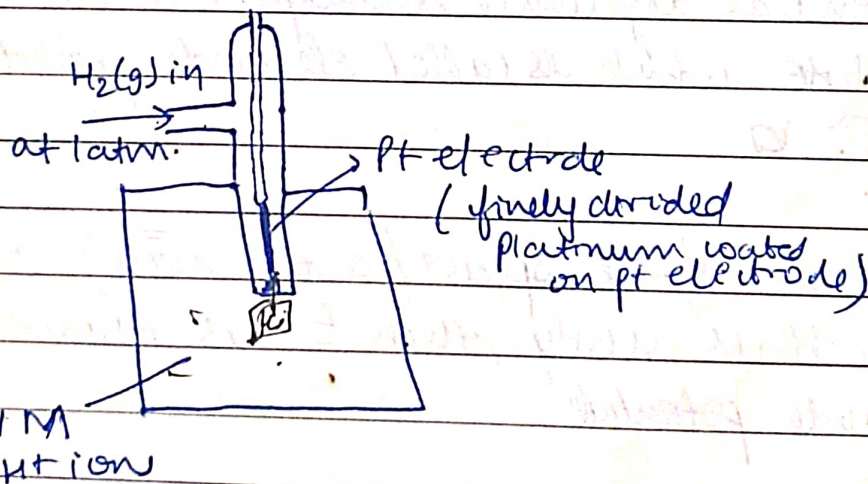 H₂(g) in
at 1 atm.
Pt electrde
(finely divided
platinum coated
on pt electrode)
1M
ution